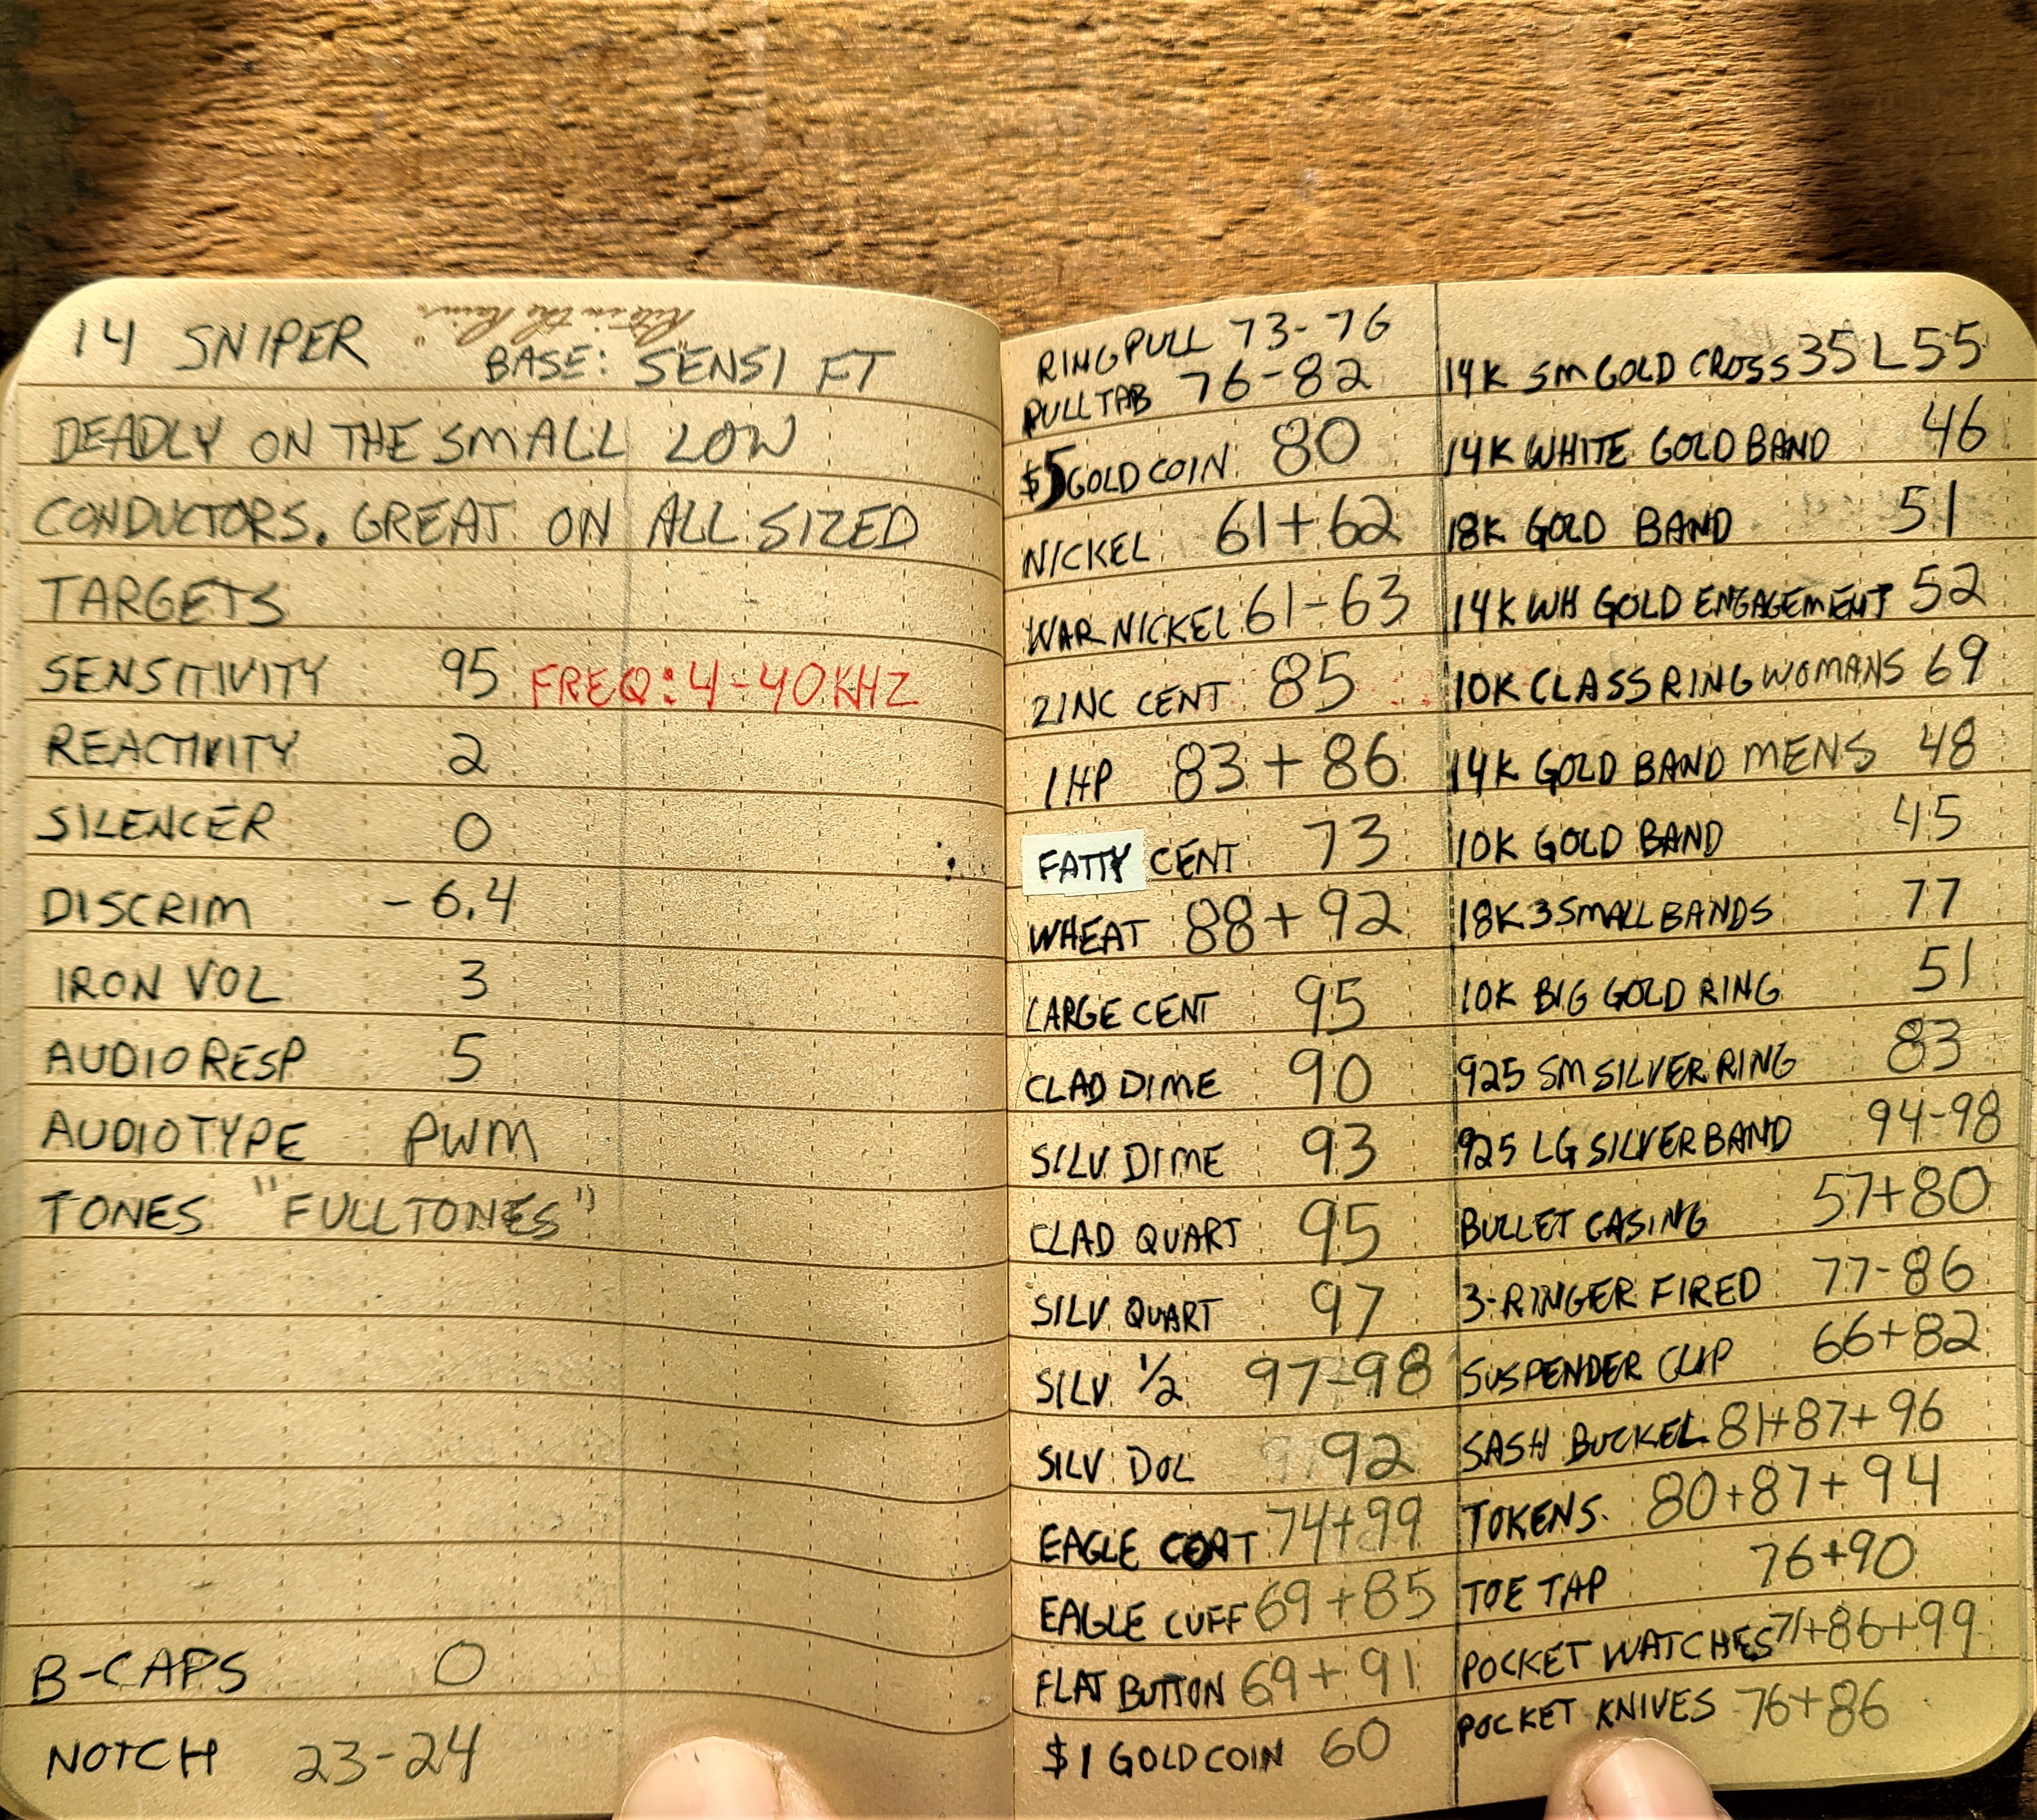 14 SNIPER
"Rite in the Rain"
BASE: SENSI FT
DEADLY ON THE SMALL LOW
CONDUCTORS. GREAT ON ALL SIZED
TARGETS
SENSITIVITY 95 FREQ: 4-40KHZ
REACTIVITY 2
SILENCER 0
DISCRIM -6.4
IRON VOL 3
AUDIO RESP 5
AUDIO TYPE PWM
TONES "FULL TONES"
B-CAPS 0
NOTCH 23-24
RING PULL 73-76
PULL TAB 76-82
$5 GOLD COIN 80
NICKEL 61+62
WAR NICKEL 61-63
ZINC CENT 85
IHP 83+86
FATTY CENT 73
WHEAT 88+92
LARGE CENT 95
CLAD DIME 90
SILV DIME 93
CLAD QUART 95
SILV QUART 97
SILV 1/2 97-98
SILV DOL 92
EAGLE COAT 74+99
EAGLE CUFF 69+85
FLAT BUTTON 69+91
$1 GOLD COIN 60
14K SM GOLD CROSS 35 L 55
14K WHITE GOLD BAND 46
18K GOLD BAND 51
14K WH GOLD ENGAGEMENT 52
10K CLASS RING WOMANS 69
14K GOLD BAND MENS 48
10K GOLD BAND 45
18K 3 SMALL BANDS 77
10K BIG GOLD RING 51
925 SM SILVER RING 83
925 LG SILVER BAND 94-98
BULLET CASING 57+80
3-RINGER FIRED 77-86
SUSPENDER CLIP 66+82
SASH BUCKEL 81+87+96
TOKENS. 80+87+94
TOE TAP 76+90
POCKET WATCHES 71+86+99
POCKET KNIVES 76+86